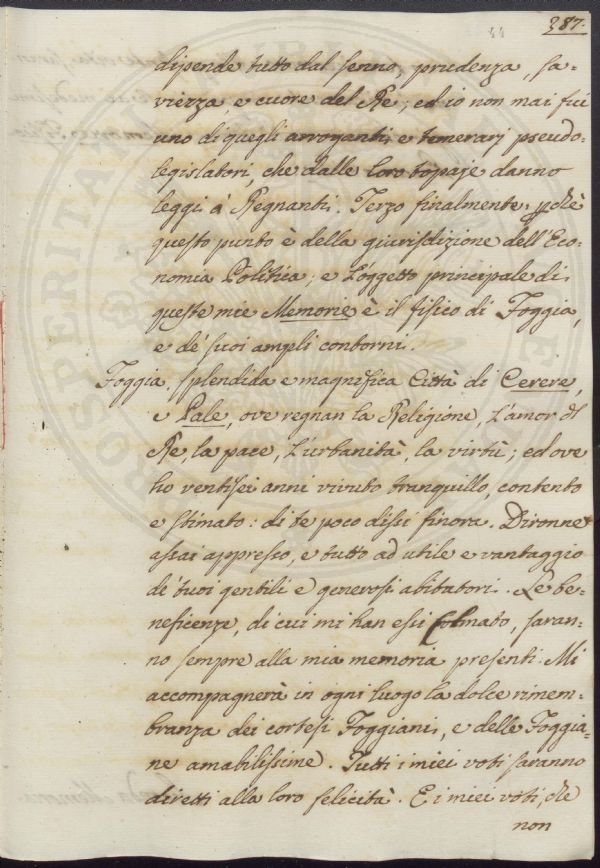 44 387.
dipende tutto dal senno, prudenza, sa-
viezza e cuore del Re; ed io non mai fui
uno di quegli arroganti, e temerarj pseudo-
legislatori, che dalle loro topaje danno
leggi a' Regnanti. Terzo finalmente: perchè
questo punto è della giurisdizione dell'Eco-
nomia Politica; e l'oggetto principale di
queste mie Memorie è il fisico di Foggia,
e de' suoi ampli contorni.
Foggia, splendida e magnifica Città di Cerere,
e Pale, ove regnan la Religione, l'amor del
Re, la pace, l'urbanità, la virtù; ed ove
ho ventisei anni vivuto tranquillo, contento
e stimato: di te poco dissi finora. Dironne
assai appresso, e tutto ad utile e vantaggio
de' tuoi gentili e generosi abitatori. Le be-
neficenze, di cui mi han essi colmato, saran-
no sempre alla mia memoria presenti. Mi
accompagnerà in ogni luogo la dolce rimem-
branza dei cortesi Foggiani, e delle Foggia-
ne amabilissime. Tutti i miei voti saranno
diretti alla loro felicità. E i miei voti, che
non
PROSPERITA